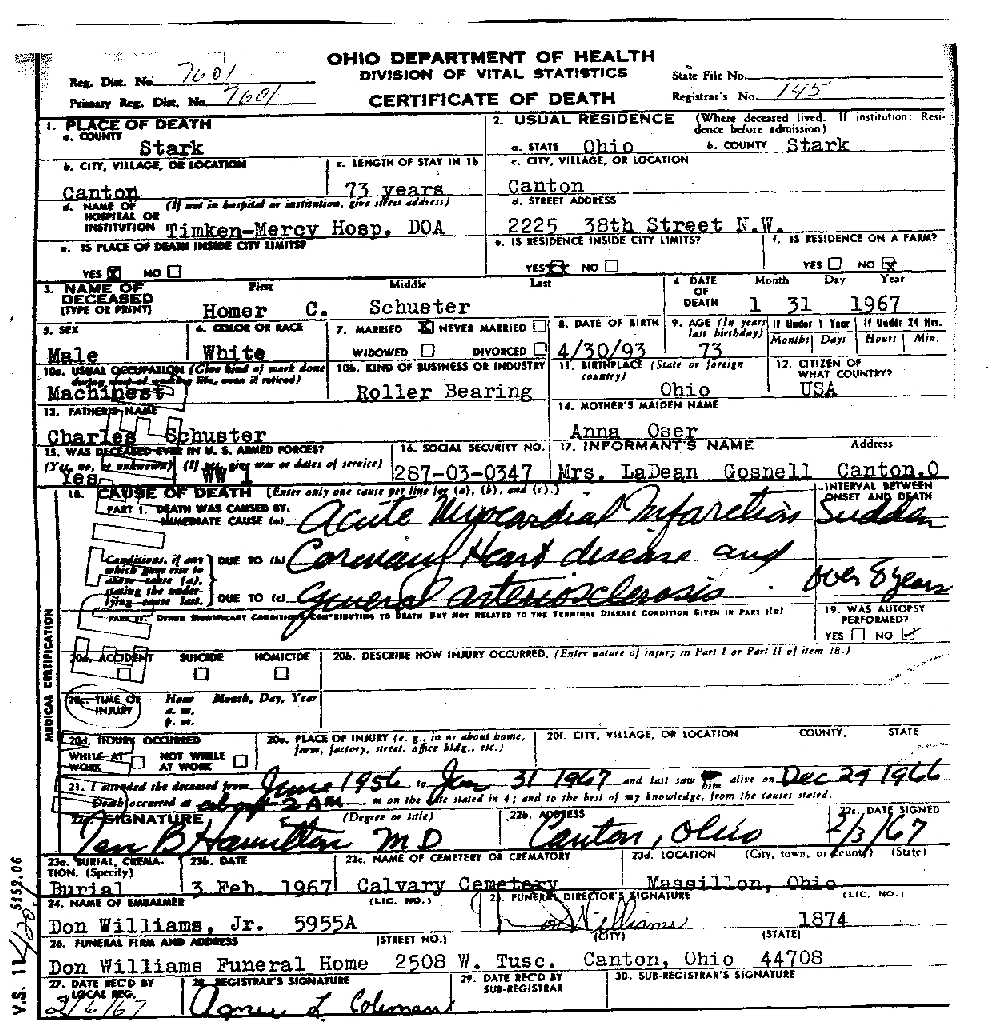 OHIO DEPARTMENT OF HEALTH
DIVISION OF VITAL STATISTICS
CERTIFICATE OF DEATH
Reg. Dist. No. 7601
Primary Reg. Dist. No. 7601
State File No.
Registrar's No. 145
1. PLACE OF DEATH
a. COUNTY
Stark
2. USUAL RESIDENCE (Where deceased lived. If institution: Residence before admission)
a. STATE Ohio b. COUNTY Stark
b. CITY, VILLAGE, OR LOCATION
Canton
c. LENGTH OF STAY IN 1b
73 years
c. CITY, VILLAGE, OR LOCATION
Canton
d. NAME OF HOSPITAL OR INSTITUTION (If not in hospital or institution, give street address)
Timken-Mercy Hosp. DOA
d. STREET ADDRESS
2225 38th Street N.W.
e. IS PLACE OF DEATH INSIDE CITY LIMITS?
YES NO
e. IS RESIDENCE INSIDE CITY LIMITS?
YES NO
f. IS RESIDENCE ON A FARM?
YES NO
3. NAME OF DECEASED (TYPE OR PRINT)
First Middle Last
Homer C. Schuster
4. DATE OF DEATH
Month Day Year
1 31 1967
5. SEX
Male
6. COLOR OR RACE
White
7. MARRIED NEVER MARRIED
WIDOWED DIVORCED
8. DATE OF BIRTH
4/30/93
9. AGE (In years last birthday)
73
If Under 1 Year If Under 24 Hrs.
Months Days Hours Min.
10a. USUAL OCCUPATION (Give kind of work done during most of working life, even if retired)
Machinest
10b. KIND OF BUSINESS OR INDUSTRY
Roller Bearing
11. BIRTHPLACE (State or foreign country)
Ohio
12. CITIZEN OF WHAT COUNTRY?
USA
13. FATHER'S NAME
Charles Schuster
14. MOTHER'S MAIDEN NAME
Anna Oser
15. WAS DECEASED EVER IN U. S. ARMED FORCES?
(Yes, no, or unknown) (If yes, give war or dates of service)
Yes WW 1
16. SOCIAL SECURITY NO.
287-03-0347
17. INFORMANT'S NAME Address
Mrs. LaDean Gosnell Canton.O
18. CAUSE OF DEATH (Enter only one cause per line for (a), (b), and (c).)
INTERVAL BETWEEN ONSET AND DEATH
PART I. DEATH WAS CAUSED BY:
IMMEDIATE CAUSE (a) Acute Myocardial Infarction Sudden
Conditions, if any which gave rise to above cause (a), stating the underlying cause last.
DUE TO (b) Coronary Heart disease and
DUE TO (c) General arteriosclerosis over 8 years
PART II. OTHER SIGNIFICANT CONDITIONS CONTRIBUTING TO DEATH BUT NOT RELATED TO THE TERMINAL DISEASE CONDITION GIVEN IN PART I(a)
19. WAS AUTOPSY PERFORMED?
YES NO
MEDICAL CERTIFICATION
20a. ACCIDENT SUICIDE HOMICIDE
20b. DESCRIBE HOW INJURY OCCURRED. (Enter nature of injury in Part I or Part II of item 18.)
20c. TIME OF INJURY
Hour Month, Day, Year
a. m.
p. m.
20d. INJURY OCCURRED
WHILE AT WORK NOT WHILE AT WORK
20e. PLACE OF INJURY (e. g., in or about home, farm, factory, street, office bldg., etc.)
20f. CITY, VILLAGE, OR LOCATION COUNTY, STATE
21. I attended the deceased from June 1956 to Jan 31 1967 and last saw him alive on Dec 29 1966
Death occurred at about 2 AM m on the date stated in 4; and to the best of my knowledge, from the causes stated.
22a. SIGNATURE (Degree or title)
B Hamilton M D
22b. ADDRESS
Canton, Ohio
22c. DATE SIGNED
2/3/67
23a. BURIAL, CREMATION. (Specify)
Burial
23b. DATE
3 Feb. 1967
23c. NAME OF CEMETERY OR CREMATORY
Calvary Cemetery
23d. LOCATION (City, town, or county) (State)
Massillon, Ohio
24. NAME OF EMBALMER (LIC. NO.)
Don Williams, Jr. 5955A
25. FUNERAL DIRECTOR'S SIGNATURE (LIC. NO.)
Don Williams 1874
26. FUNERAL FIRM AND ADDRESS (STREET NO.) (CITY) (STATE)
Don Williams Funeral Home 2508 W. Tusc. Canton, Ohio 44708
27. DATE REC'D BY LOCAL REG.
2/6/67
28. REGISTRAR'S SIGNATURE
Agnes L Coleman
29. DATE REC'D BY SUB-REGISTRAR
30. SUB-REGISTRAR'S SIGNATURE
V.S. 11
5152.06